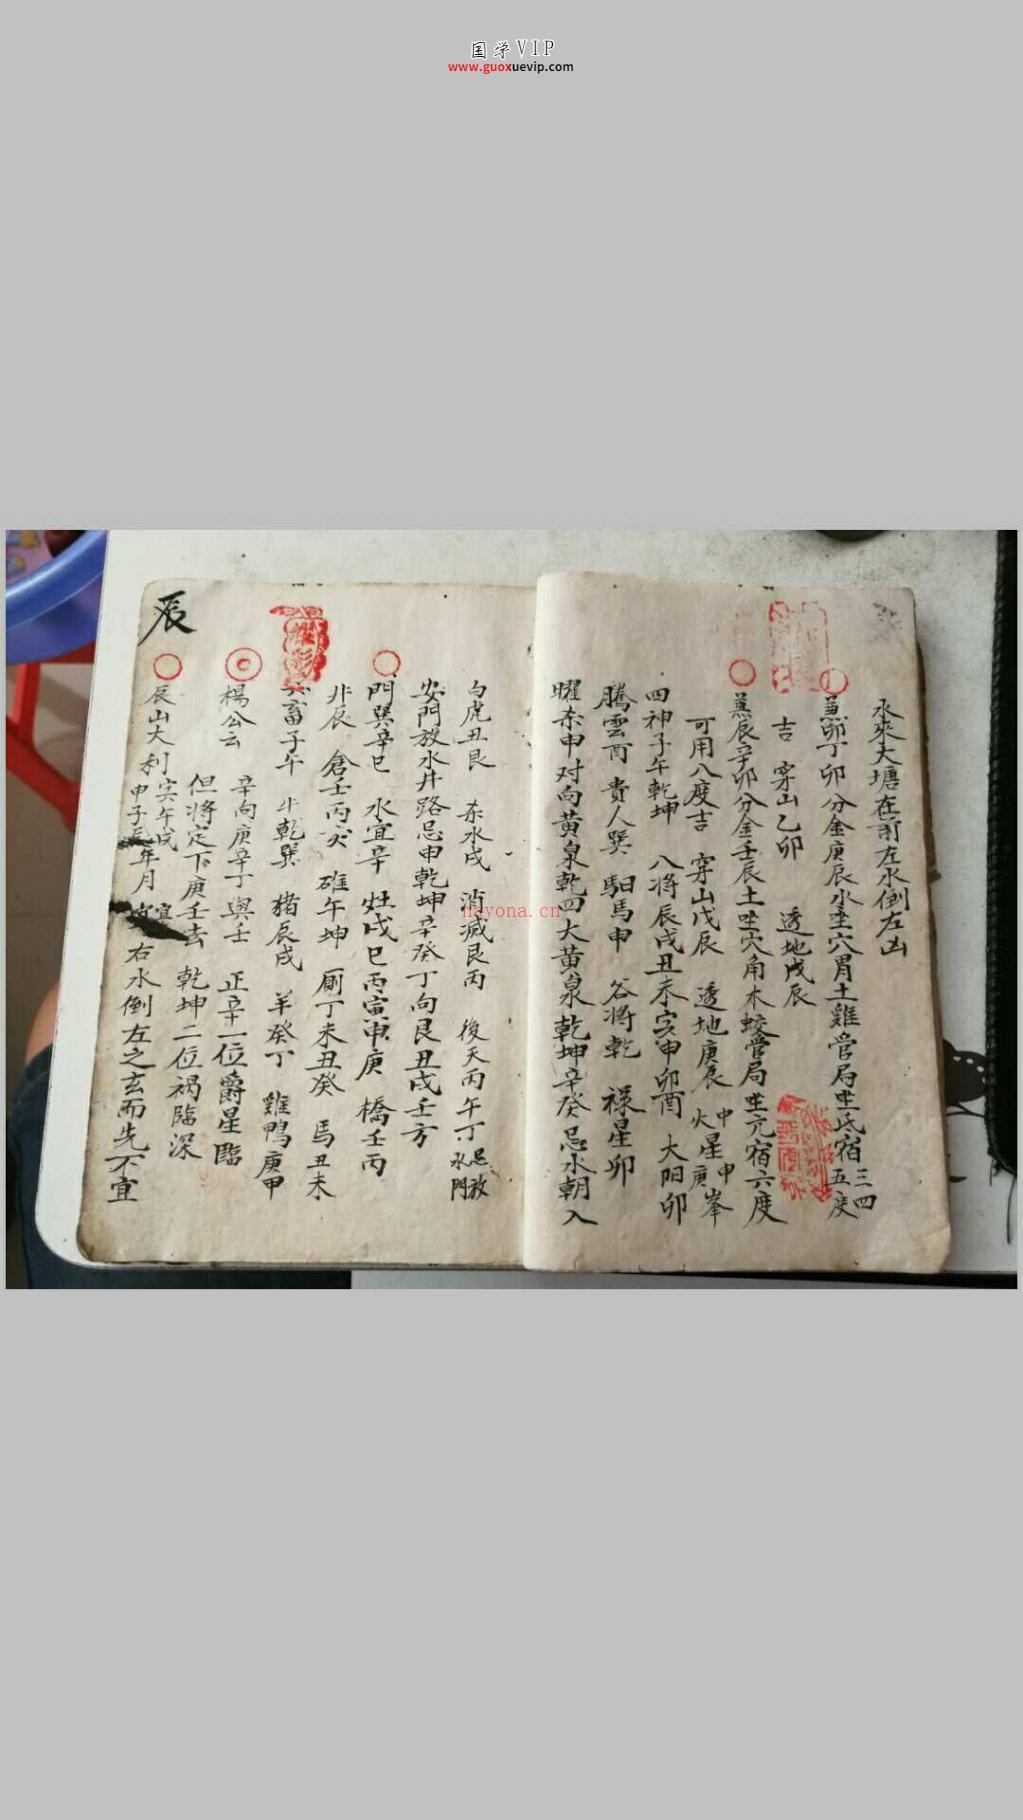 国学VIP
www.guoxuevip.com
水來大塘在前左水倒左凶
兼卯丁卯分金庚辰水坐穴胃土雞管局坐氐宿三四五度
吉 穿山乙卯 透地戊辰
兼辰辛卯分金壬辰土坐穴角木蛟管局坐亢宿六度
可用八度吉 穿山戊辰 透地庚辰 火星庚 申申峯
四神子午乾坤 八將辰戌丑未寅申卯酉 太阳卯
騰雲酉 貴人巽 馹馬申 谷將乾 禄星卯
曜杀申对向黄泉乾四大黄泉乾坤辛癸忌水朝入
白虎丑艮 杀水戌 消滅艮丙 後天丙午丁忌放水門
安門放水井路忌申乾坤辛癸丁向艮丑戌壬方
門巽辛巳 水宜辛 灶戌巳丙寅申庚 橋壬丙
非辰 倉壬丙 碓午坤 厠丁未丑癸 馬丑未
畜子午 牛乾巽 猪辰戌 羊癸丁 雞鴨庚甲
楊公云 辛向庚辛丁與壬 正辛一位爵星臨
但將定下庚壬去 乾坤二位禍臨深
辰山大利申子辰寅午戌年月 宜右水倒左之玄而先不宜
辰
nayona.cn